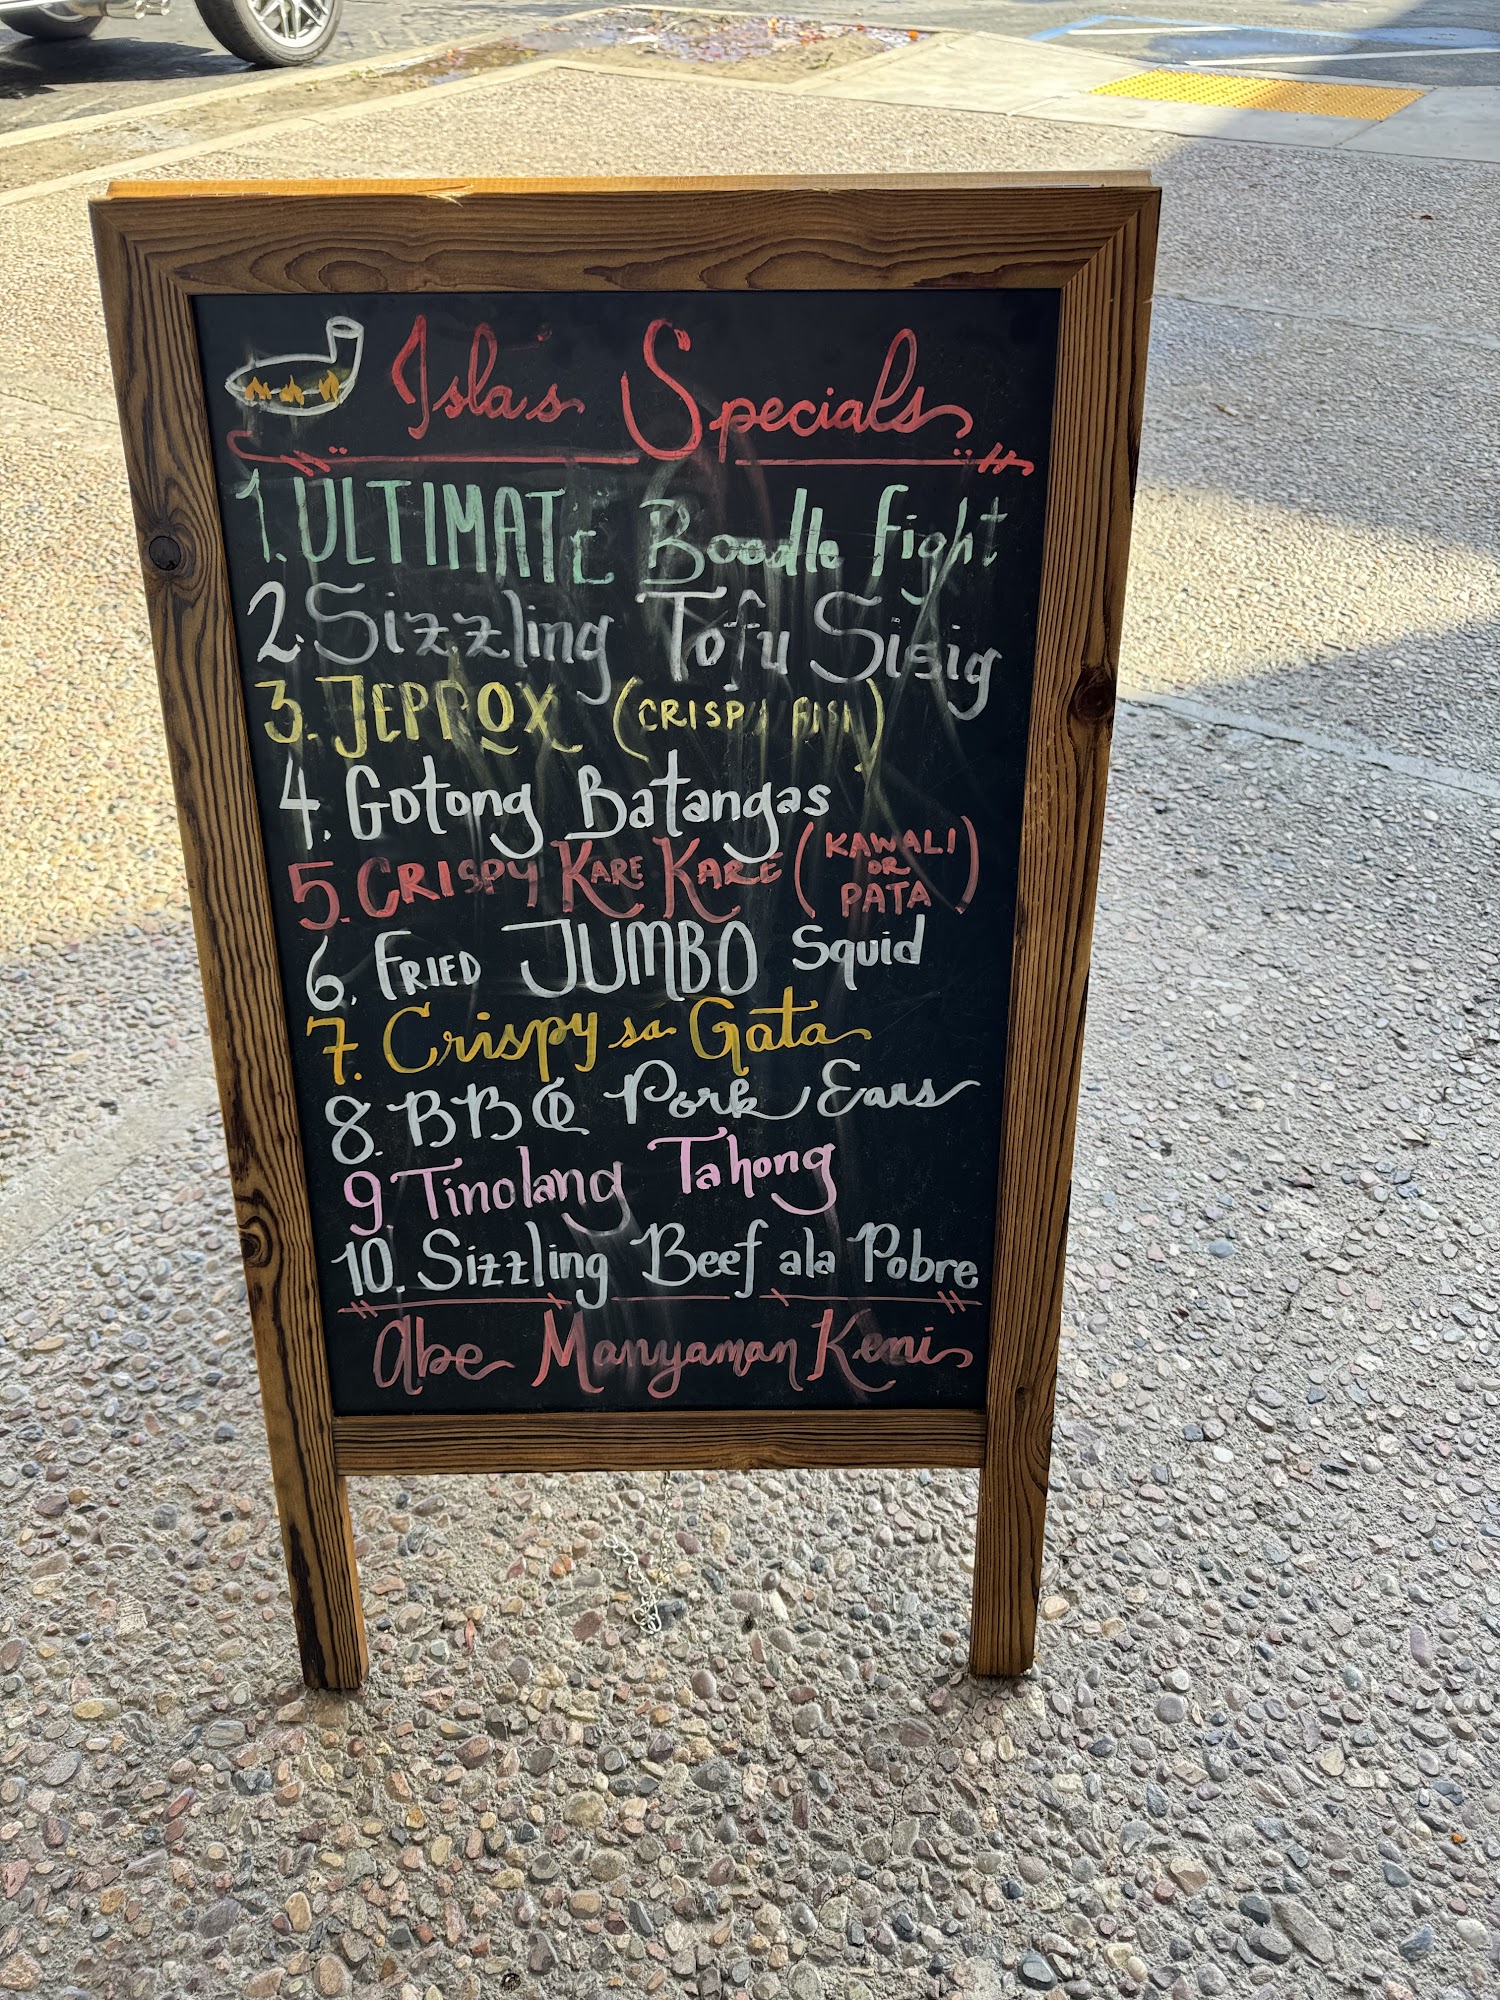 Isla's Specials
1. ULTIMATE Boodle fight
2. Sizzling Tofu Sisig
3. JEPROX (CRISPY FISH)
4. Gotong Batangas
5. CRISPY KARE KARE (KAWALI OR PATA)
6. FRIED JUMBO Squid
7. Crispy sa Gata
8. BBQ Pork Ears
9. Tinolang Tahong
10. Sizzling Beef ala Pobre
Abe Manyaman Keni